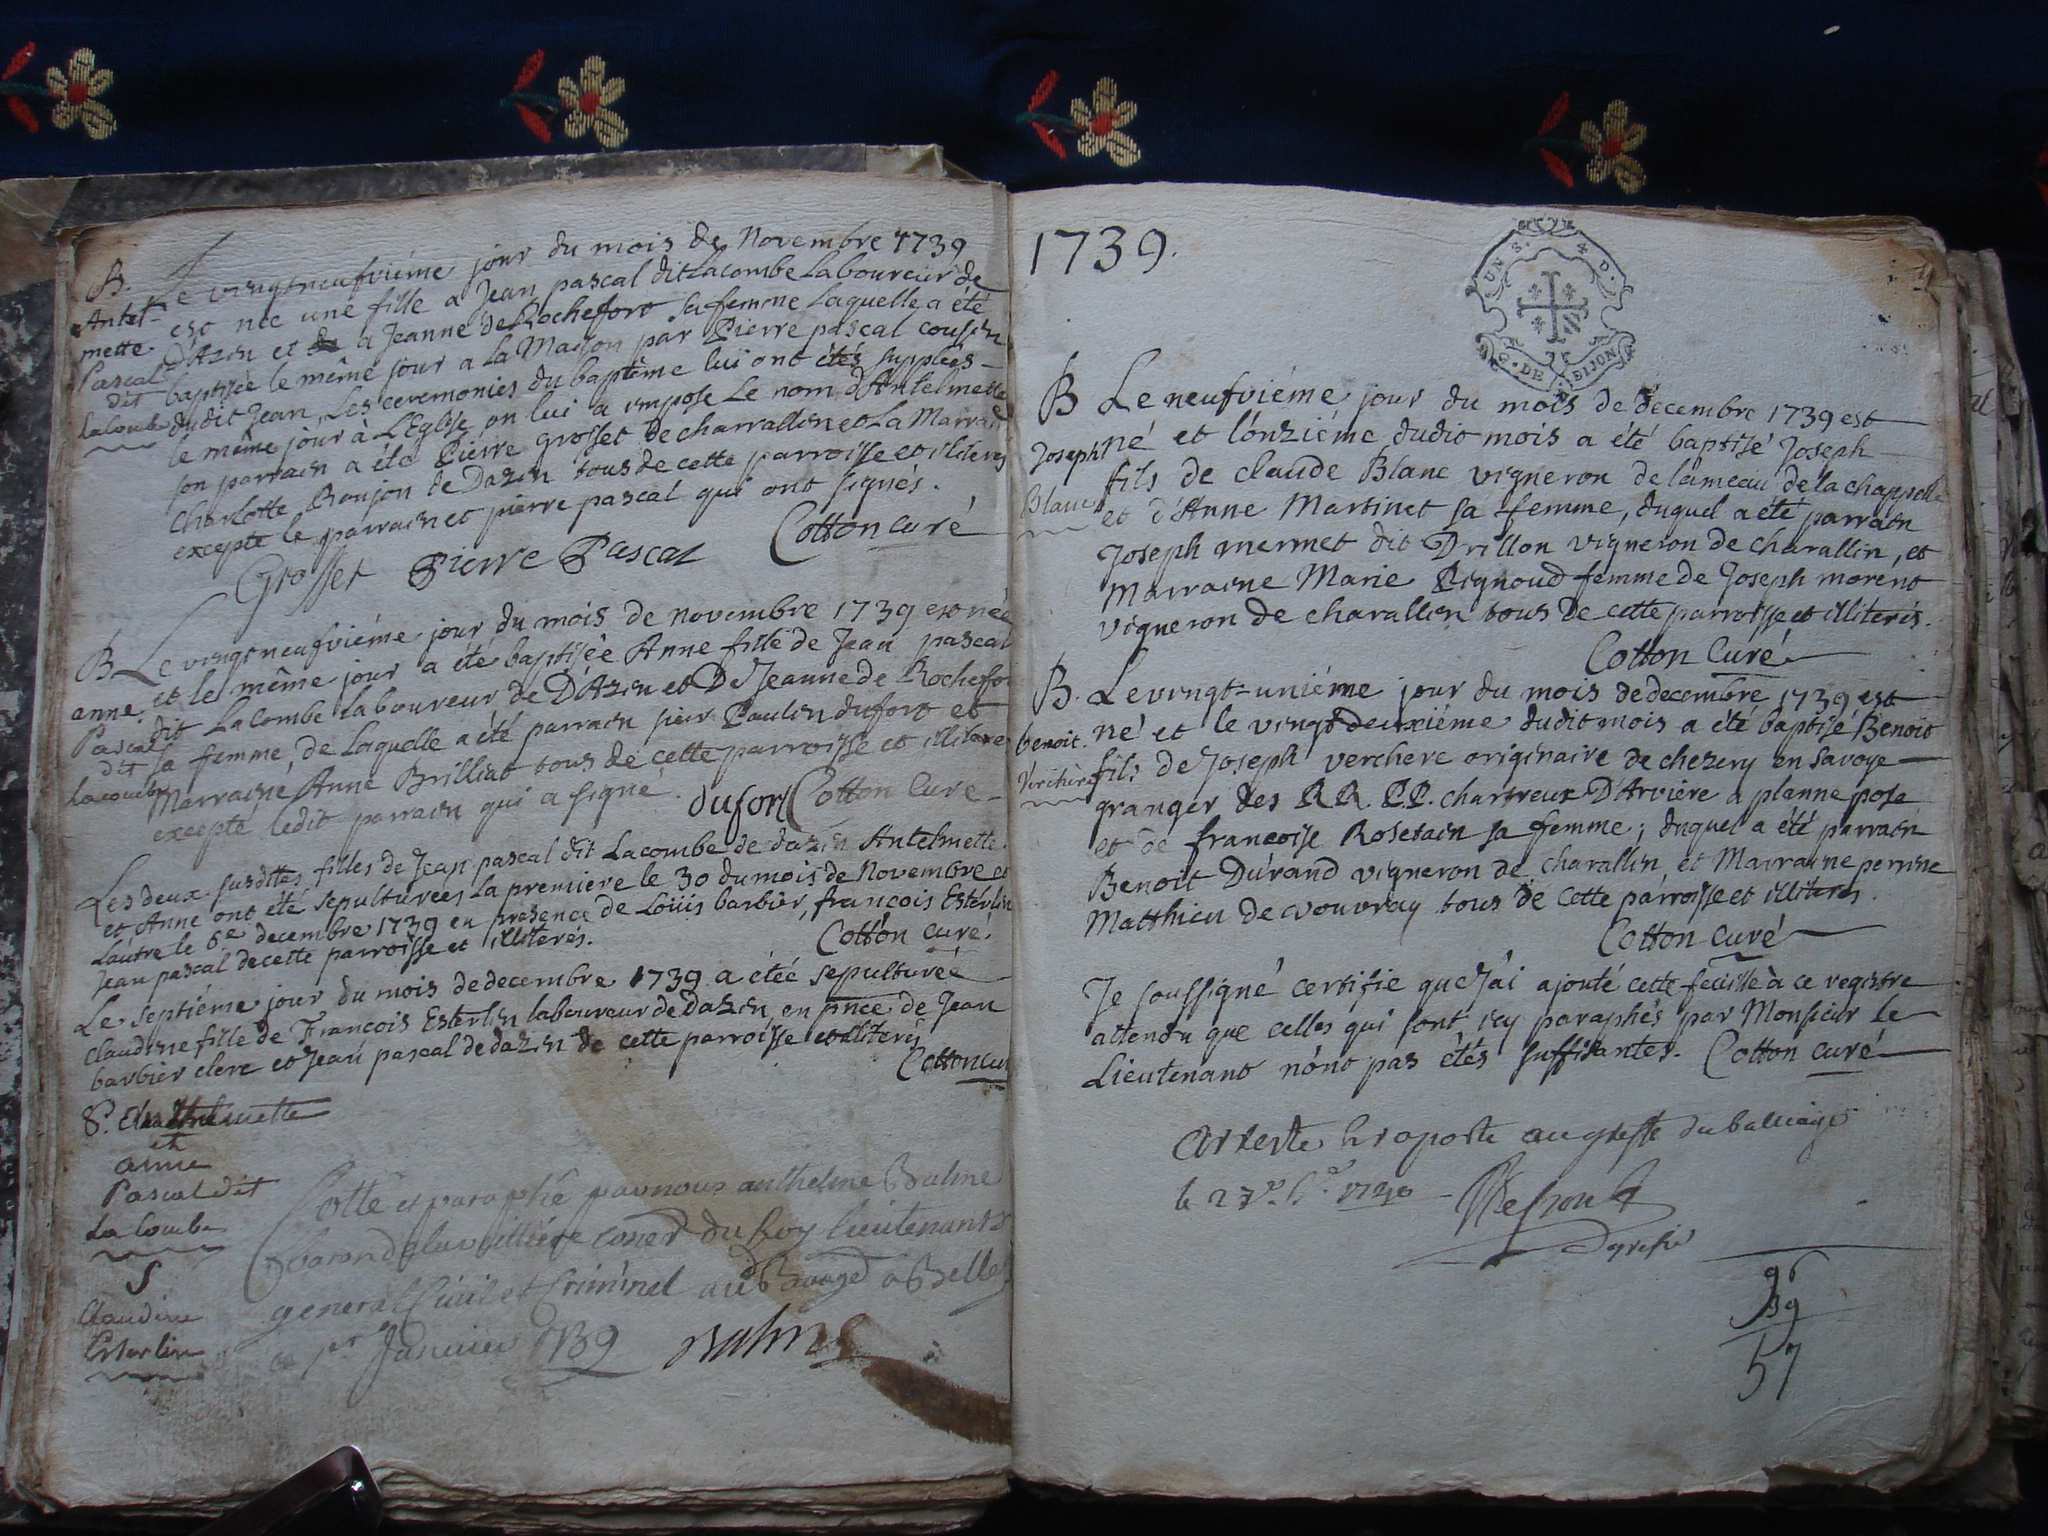 B. Le vingtneufviéme jour du mois de Novembre 1739
Antel- est née une fille a Jean pascal dit Lacombe Laboureur de
mette D'Azin et a Jeanne de Rochefort sa femme Laquelle a été
Pascal baptisée le même jour a la Maison par Pierre pascal cousin
dit dudit Jean, Les ceremonies du baptême lui ont étés supplées
Lacombe le même jour à L'Eglise on lui a imposé Le nom d'Antelmette
son parrain a été Pierre grosset de charrallin et La Marraine
Charlotte Boujon de Dazin tous de cette parroisse et illiteres
excepte le parrain et pierre pascal qui ont signés.
Grosset Pierre Pascal Cotton curé
B Le vingtneufviéme jour du mois de novembre 1739 est née
anne et le même jour a été baptisée Anne fille de Jean pascal
Pascal dit LaCombe laboureur de D'Azin et De Jeanne de Rochefort
dit sa femme, de Laquelle a été parrain sieur Paulin dufort et
Lacombe Marraine Anne Brilliat tous de cette parroisse et illiteres
excepte ledit parrain qui a signé. dufort Cotton Curé
Les deux susdittes filles de Jean pascal dit Lacombe de dazin Antelmette
et Anne ont été sepulturées La premiere le 30 du mois de Novembre et
L'autre le 6e decembre 1739 en presence de Loüis barbier, françois Esterlin
Jean pascal de cette parroisse et illiterés. Cotton curé.
Le septiéme jour du mois de decembre 1739 a étée sepulturée
claudine fille de François Esterlin laboureur de Dazin, en pnce de Jean
barbier clerc et Jean pascal de dazin de cette parroisse et illiterés
Cotton curé
S. Anthelmette
et
anne
Pascal dit
La Combe
S
Claudine
Esterlin
Cotté et paraphé par nous anthelme Balme
general Civil et Criminel au Bailliage de Belley
ce 1er Janvier 1739 Balme
1739.
UN S. 4 D.
G. DE DIJON
B Le neufviéme jour du mois de decembre 1739 est
Joseph né et l'ónziéme dudit mois a été baptisé Joseph
Blanc fils de claude Blanc vigneron de l'ameau de la chappelle
et d'Anne Martinet sa femme, duquel a été parrain
Joseph mermet dit Drillon vigneron de charallin, et
Marraine Marie Rignoud femme de Joseph morent
vigneron de charallin tous de cette parroisse et illiterés.
Cotton Curé
B. Le vingt-uniéme jour du mois de decembre 1739 est
benoit né et le vingtdeuxiéme dudit mois a été baptisé Benoit
Verchere fils de Joseph verchere originaire de chezery en Savoye
granger des RR. PP. chartreux D'Arviere a planne pose
et de françoise Rosetain sa femme; duquel a été parrain
Benoit Durand vigneron de charallin, et Marraine perrine
Matthieu de vouvray tous de cette parroisse et illiterés.
Cotton curé
Je soussigné certifie que J'ai ajouté cette feüille à ce registre
attendu que celles qui sont icy paraphés par Monsieur le
Lieutenant n'ónt pas étés suffisantes. Cotton curé
Arresté et raporté au greffe du balliage
le 27e
greffier
96
39
57